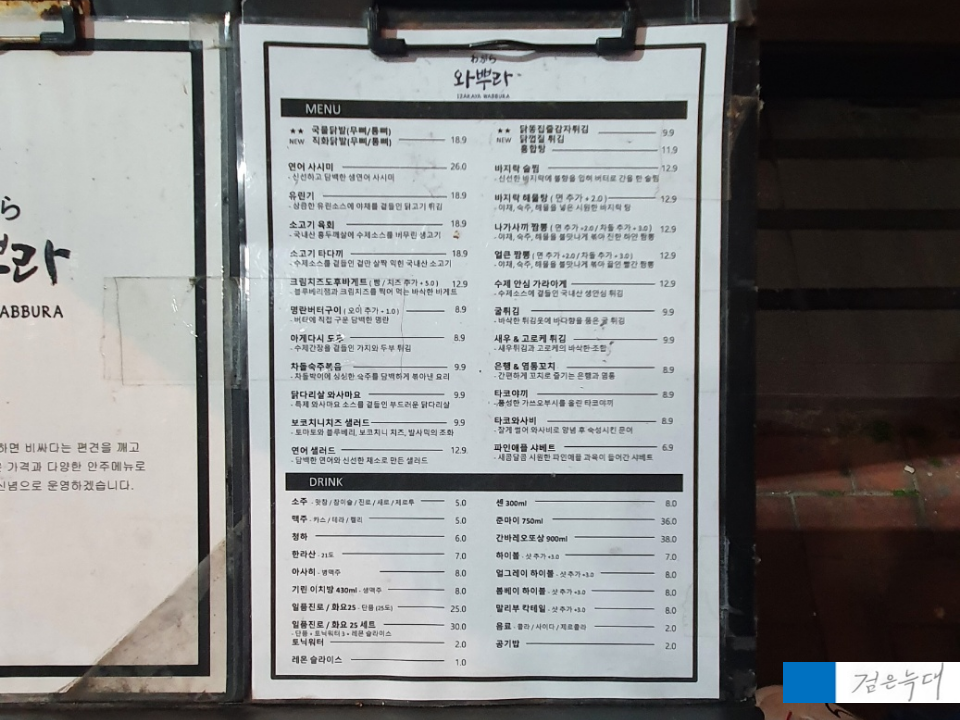 라
뿌라
ABBURA
하면 비싸다는 편견을 깨고
가격과 다양한 안주메뉴로
신념으로 운영하겠습니다.
わぷら
와뿌라
IZAKAYA WABBURA
MENU
★★ 국물닭발(무뼈/통뼈)
NEW 직화닭발(무뼈/통뼈) 18.9
연어 사시미 26.0
- 신선하고 담백한 생연어 사시미
유린기 18.9
- 상큼한 유린소스에 야채를 곁들인 닭고기 튀김
소고기 육회 18.9
- 국내산 홍두깨살에 수제소스를 버무린 생고기
소고기 타다끼 18.9
- 수제소스를 곁들인 겉만 살짝 익힌 국내산 소고기
크림치즈도후바게트 ( 빵 / 치즈 추가 + 5.0 ) 12.9
- 블루베리잼과 크림치즈를 찍어 먹는 바삭한 바게트
명란버터구이 ( 오이 추가 + 1.0 ) 8.9
- 버터에 직접 구운 담백한 명란
아게다시 도후 8.9
- 수제간장을 곁들인 가지와 두부 튀김
차돌숙주볶음 9.9
- 차돌박이에 싱싱한 숙주를 담백하게 볶아낸 요리
닭다리살 와사마요 9.9
- 특제 와사마요 소스를 곁들인 부드러운 닭다리살
보코치니치즈 샐러드 9.9
- 토마토와 블루베리, 보코치니 치즈, 발사믹의 조화
연어 샐러드 12.9
- 담백한 연어와 신선한 채소로 만든 샐러드
★★ 닭똥집줄감자튀김 9.9
NEW 닭껍질 튀김
홍합탕 11.9
바지락 술찜 12.9
- 신선한 바지락에 불향을 입혀 버터로 간을 한 술찜
바지락 해물탕 ( 면 추가 + 2.0 ) 12.9
- 야채, 숙주, 해물을 넣은 시원한 바지락 탕
나가사끼 짬뽕 ( 면 추가 +2.0 / 차돌 추가 + 3.0 ) 12.9
- 야채, 숙주, 해물을 불맛나게 볶아 진한 하얀 짬뽕
얼큰 짬뽕 ( 면 추가 +2.0 / 차돌 추가 + 3.0 ) 12.9
- 야채, 숙주, 해물을 불맛나게 볶아 끓인 빨간 짬뽕
수제 안심 가라아게 12.9
- 수제소스에 곁들인 국내산 생안심 튀김
굴튀김 9.9
- 바삭한 튀김옷에 바다향을 품은 굴 튀김
새우 & 고로케 튀김 9.9
- 새우튀김과 고로케의 바삭한 조합
은행 & 염통꼬치 8.9
- 간편하게 꼬치로 즐기는 은행과 염통
타코야끼 8.9
- 풍성한 가쓰오부시를 올린 타코야끼
타코와사비 8.9
- 잘게 썰어 와사비로 양념 후 숙성시킨 문어
파인애플 샤베트 6.9
- 새콤달콤 시원한 파인애플 과육이 들어간 샤베트
DRINK
소주 - 맛참 / 참이슬 / 진로 / 새로 / 제로투 5.0
맥주 - 카스 / 테라 / 켈리 5.0
청하 6.0
한라산 - 21도 7.0
아사히 - 병맥주 8.0
기린 이치방 430ml - 생맥주 8.0
일품진로 / 화요25 - 단품 (25도) 25.0
일품진로 / 화요 25 세트 30.0
- 단품 + 토닉워터 3 + 레몬 슬라이스
토닉워터 2.0
레몬 슬라이스 1.0
센 300ml 8.0
준마이 750ml 36.0
간바레오또상 900ml 38.0
하이볼 - 샷 추가 +3.0 7.0
얼그레이 하이볼 - 샷추가 +3.0 8.0
봄베이 하이볼 - 샷추가 +3.0 8.0
말리부 칵테일 - 샷추가 +3.0 8.0
음료 - 콜라 / 사이다 / 제로콜라 2.0
공기밥 2.0
검은늑대